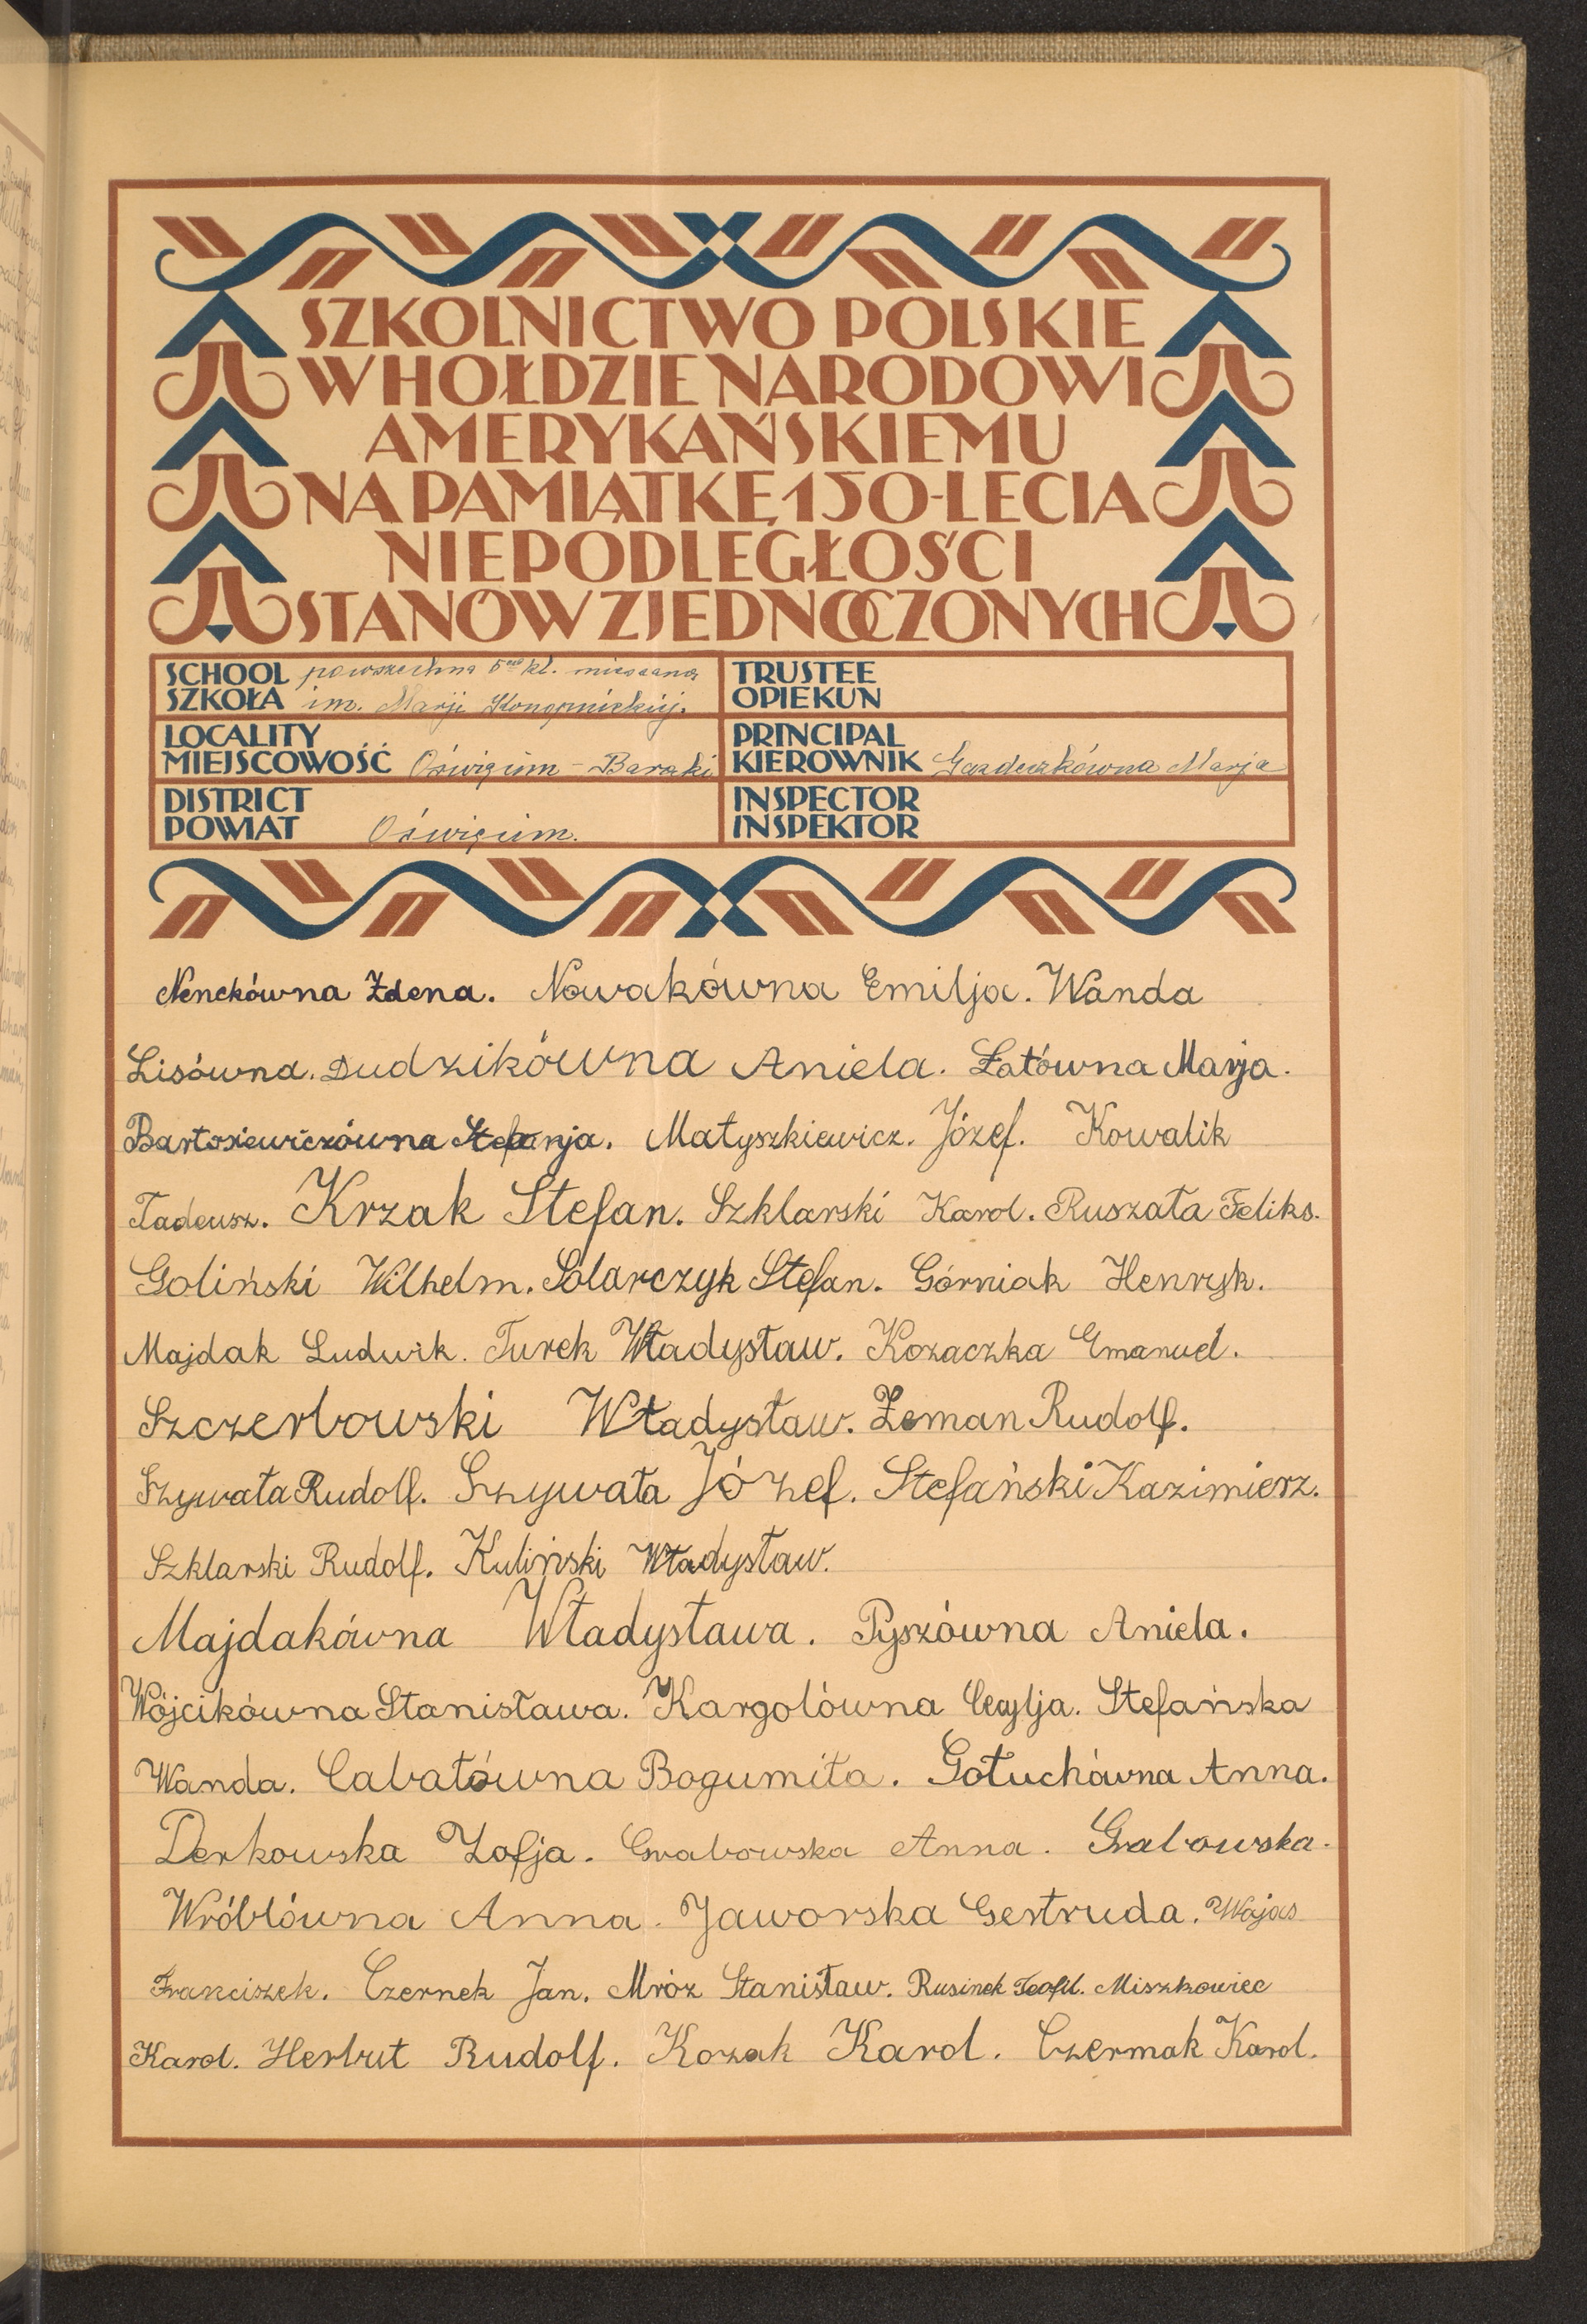 SZKOLNICTWO POLSKIE
W HOŁDZIE NARODOWI
AMERYKAŃSKIEMU
NA PAMIĄTKĘ 150-LECIA
NIEPODLEGŁOŚCI
STANÓW ZJEDNOCZONYCH
SCHOOL powszechna 5cio kl. mieszana
SZKOŁA im. Marji Konopnickiej.
TRUSTEE
OPIEKUN
LOCALITY
MIEJSCOWOŚĆ Oświęcim - Baraki
PRINCIPAL
KIEROWNIK Gazdeczkówna Marja
DISTRICT
POWIAT Oświęcim.
INSPECTOR
INSPEKTOR
Nenckówna Zdena. Nowakówna Emilja. Wanda
Lisówna. Dudzikówna Aniela. Łatówna Marja.
Bartosiewiczówna Stefanja. Matyszkiewicz. Józef. Kowalik
Tadeusz. Krzak Stefan. Szklarski Karol. Ruszała Feliks.
Goliński Wilhelm. Solarczyk Stefan. Górniak Henryk.
Majdak Ludwik. Turek Władysław. Kozaczka Emanuel.
Szczerbowski Władysław. Zeman Rudolf.
Szywała Rudolf. Szywała Józef. Stefański Kazimierz.
Szklarski Rudolf. Kuliński Władysław.
Majdakówna Władysława. Pyszówna Aniela.
Wójcikówna Stanisława. Kargolówna Cecylja. Stefańska
Wanda. Cabałówna Bogumiła. Gołuchówna Anna.
Derkowska Zofja. Grabowska Anna. Grabowska.
Wróblówna Anna. Jaworska Gertruda. Wojas
Franciszek. Czernek Jan. Mróz Stanisław. Rusinek Teofil. Miszkowiec
Karol. Herbut Rudolf. Kozak Karol. Czermak Karol.